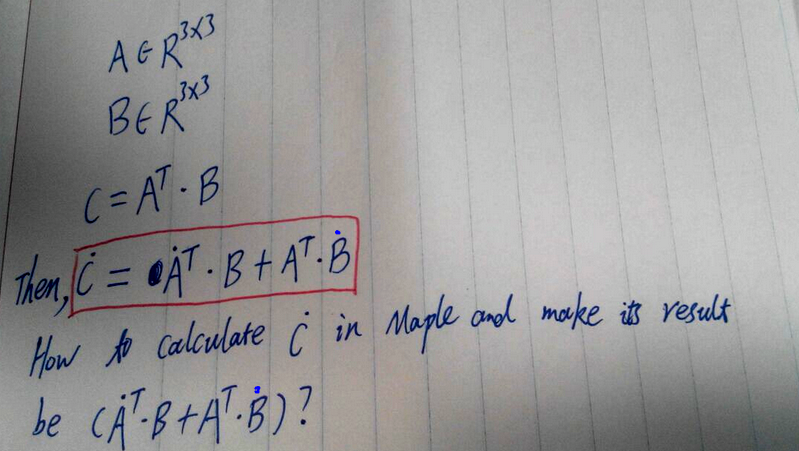 A ∈ R³ˣ³
B ∈ R³ˣ³
C = Aᵀ · B
Then, Ċ = Ȧᵀ · B + Aᵀ · Ḃ
How to calculate Ċ in Maple and make its result
be (Ȧᵀ · B + Aᵀ · Ḃ)?